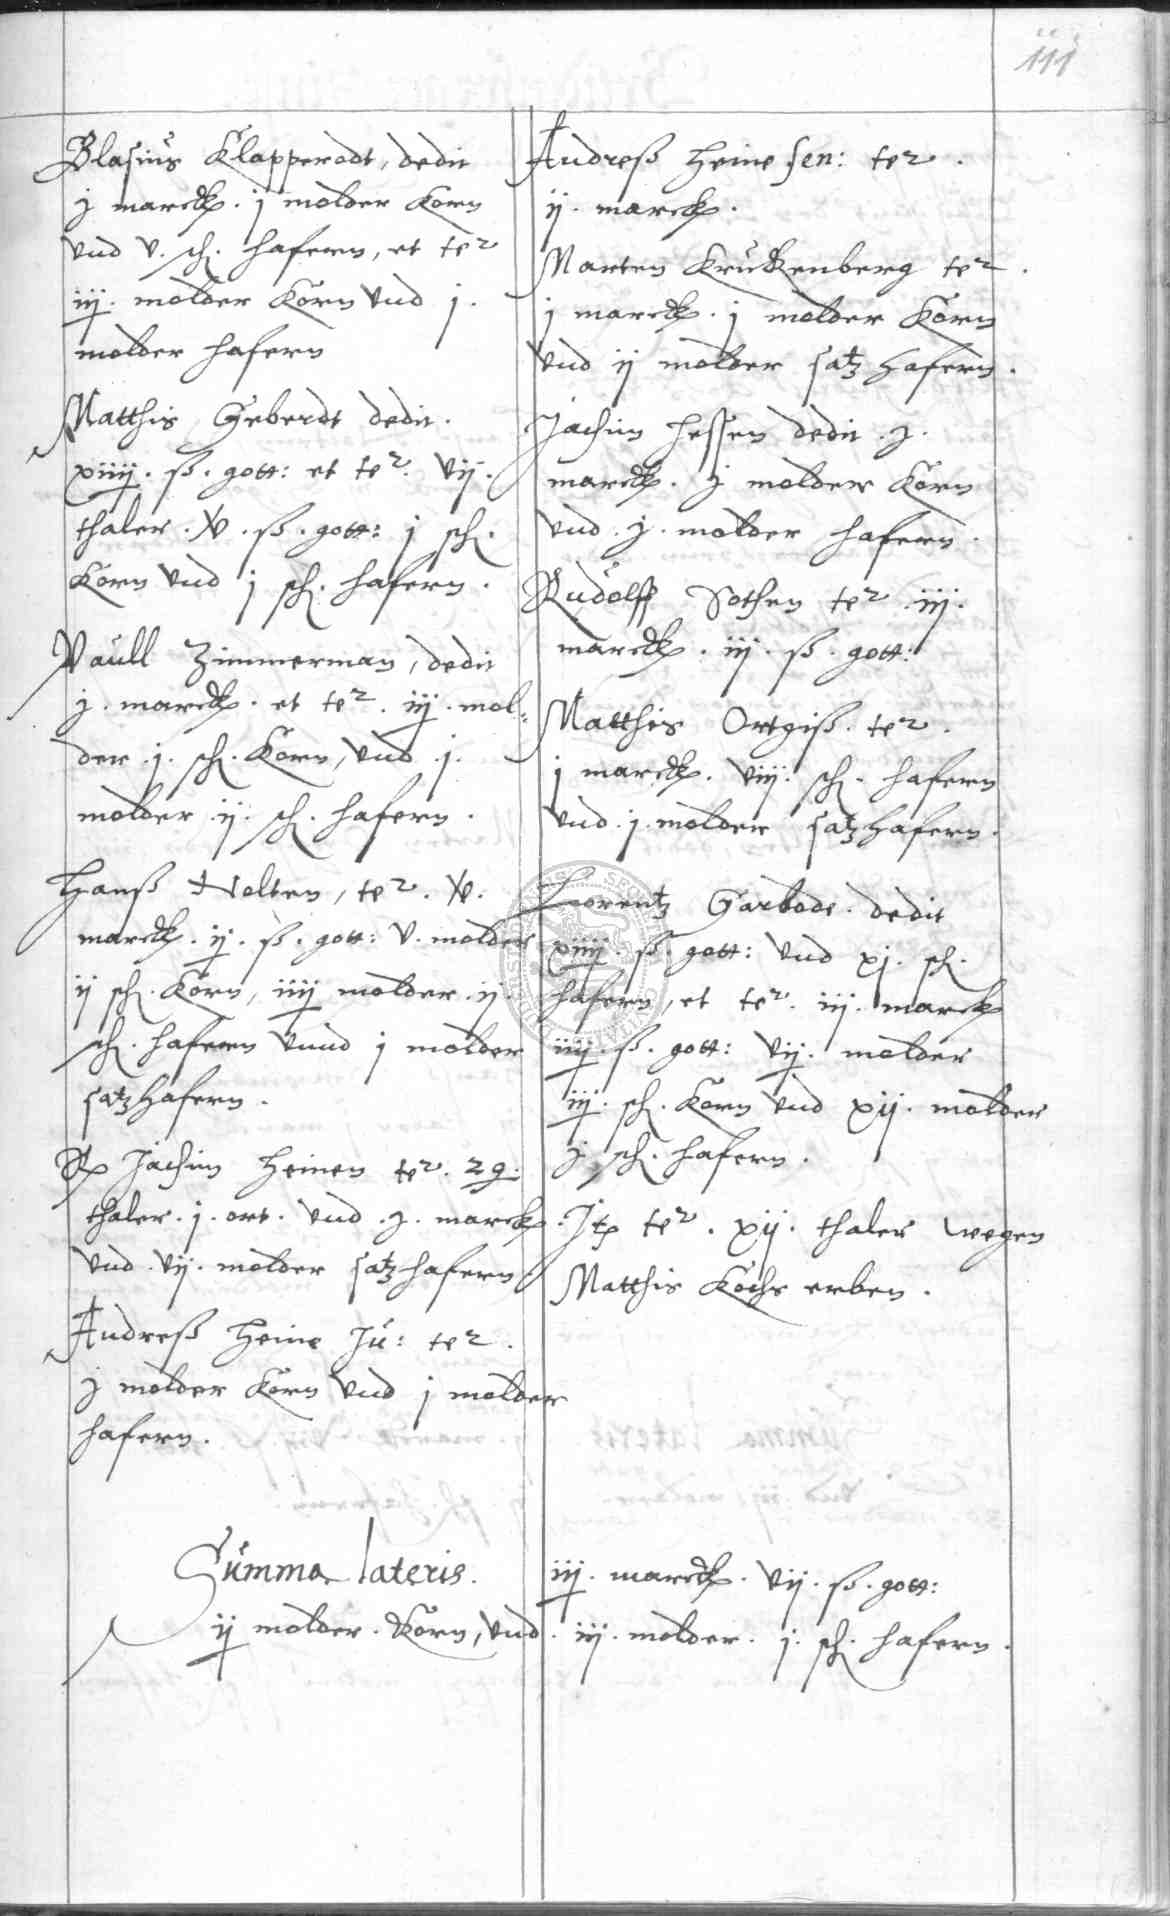 iij
Blasius Klapperodt, dedit
j marck. j molder Korn
vnd v. sch. hafern, et tet2
iij. molder Korn vnd j.
molder hafern
Matthis Geberdt dedit.
xiiij. ß. gott: et tet2. vij.
thaler. xv. ß. gott: j sch.
Korn vnd j sch. hafern.
Paull Zimmerman, dedit
j. marck. et tet2. iij. mol=
der. j. sch. Korn, vnd .j.
molder .ij. sch. hafern.
Hanß Nolten, tet2. xv.
marck. ij. ß. gott: v. molder
ij sch. Korn, iiij molder .ij.
sch. hafern vnnd j molder
satzhafern.
Jachim Heinen tet2. 29.
thaler. j. ort. vnd .j. marck
vnd .vij. molder satzhafern
Andreß Heine Ju: tet2.
j molder Korn vnd j molder
hafern.
Andreß Heine sen: tet2.
ij. marck.
Marten Kruckenberg tet2.
j marck. j molder Korn
vnd ij molder satzhafern.
Jachim Hessen dedit .j.
marck. j molder Korn
vnd .j. molder hafern.
Rudolff Sothen tet2 .iij.
marck. iij. ß. gott:
Matthis Ortgiß. tet2.
j marck. viij. sch. hafern
vnd .j. molder satzhafern.
Lorentz Garbode. dedit
xiiij. ß. gott: vnd xj. sch.
hafern, et tet2. iij. marck
iiij. ß. gott: vij. molder
iij. sch. Korn vnd xij. molder
j sch. hafern.
It tet2. xij. thaler wegen
Matthis Kochs erben.
Summa lateris. iij. marck. vij. ß. gott:
ij molder. Korn, vnd. iij. molder. j. sch. hafern.